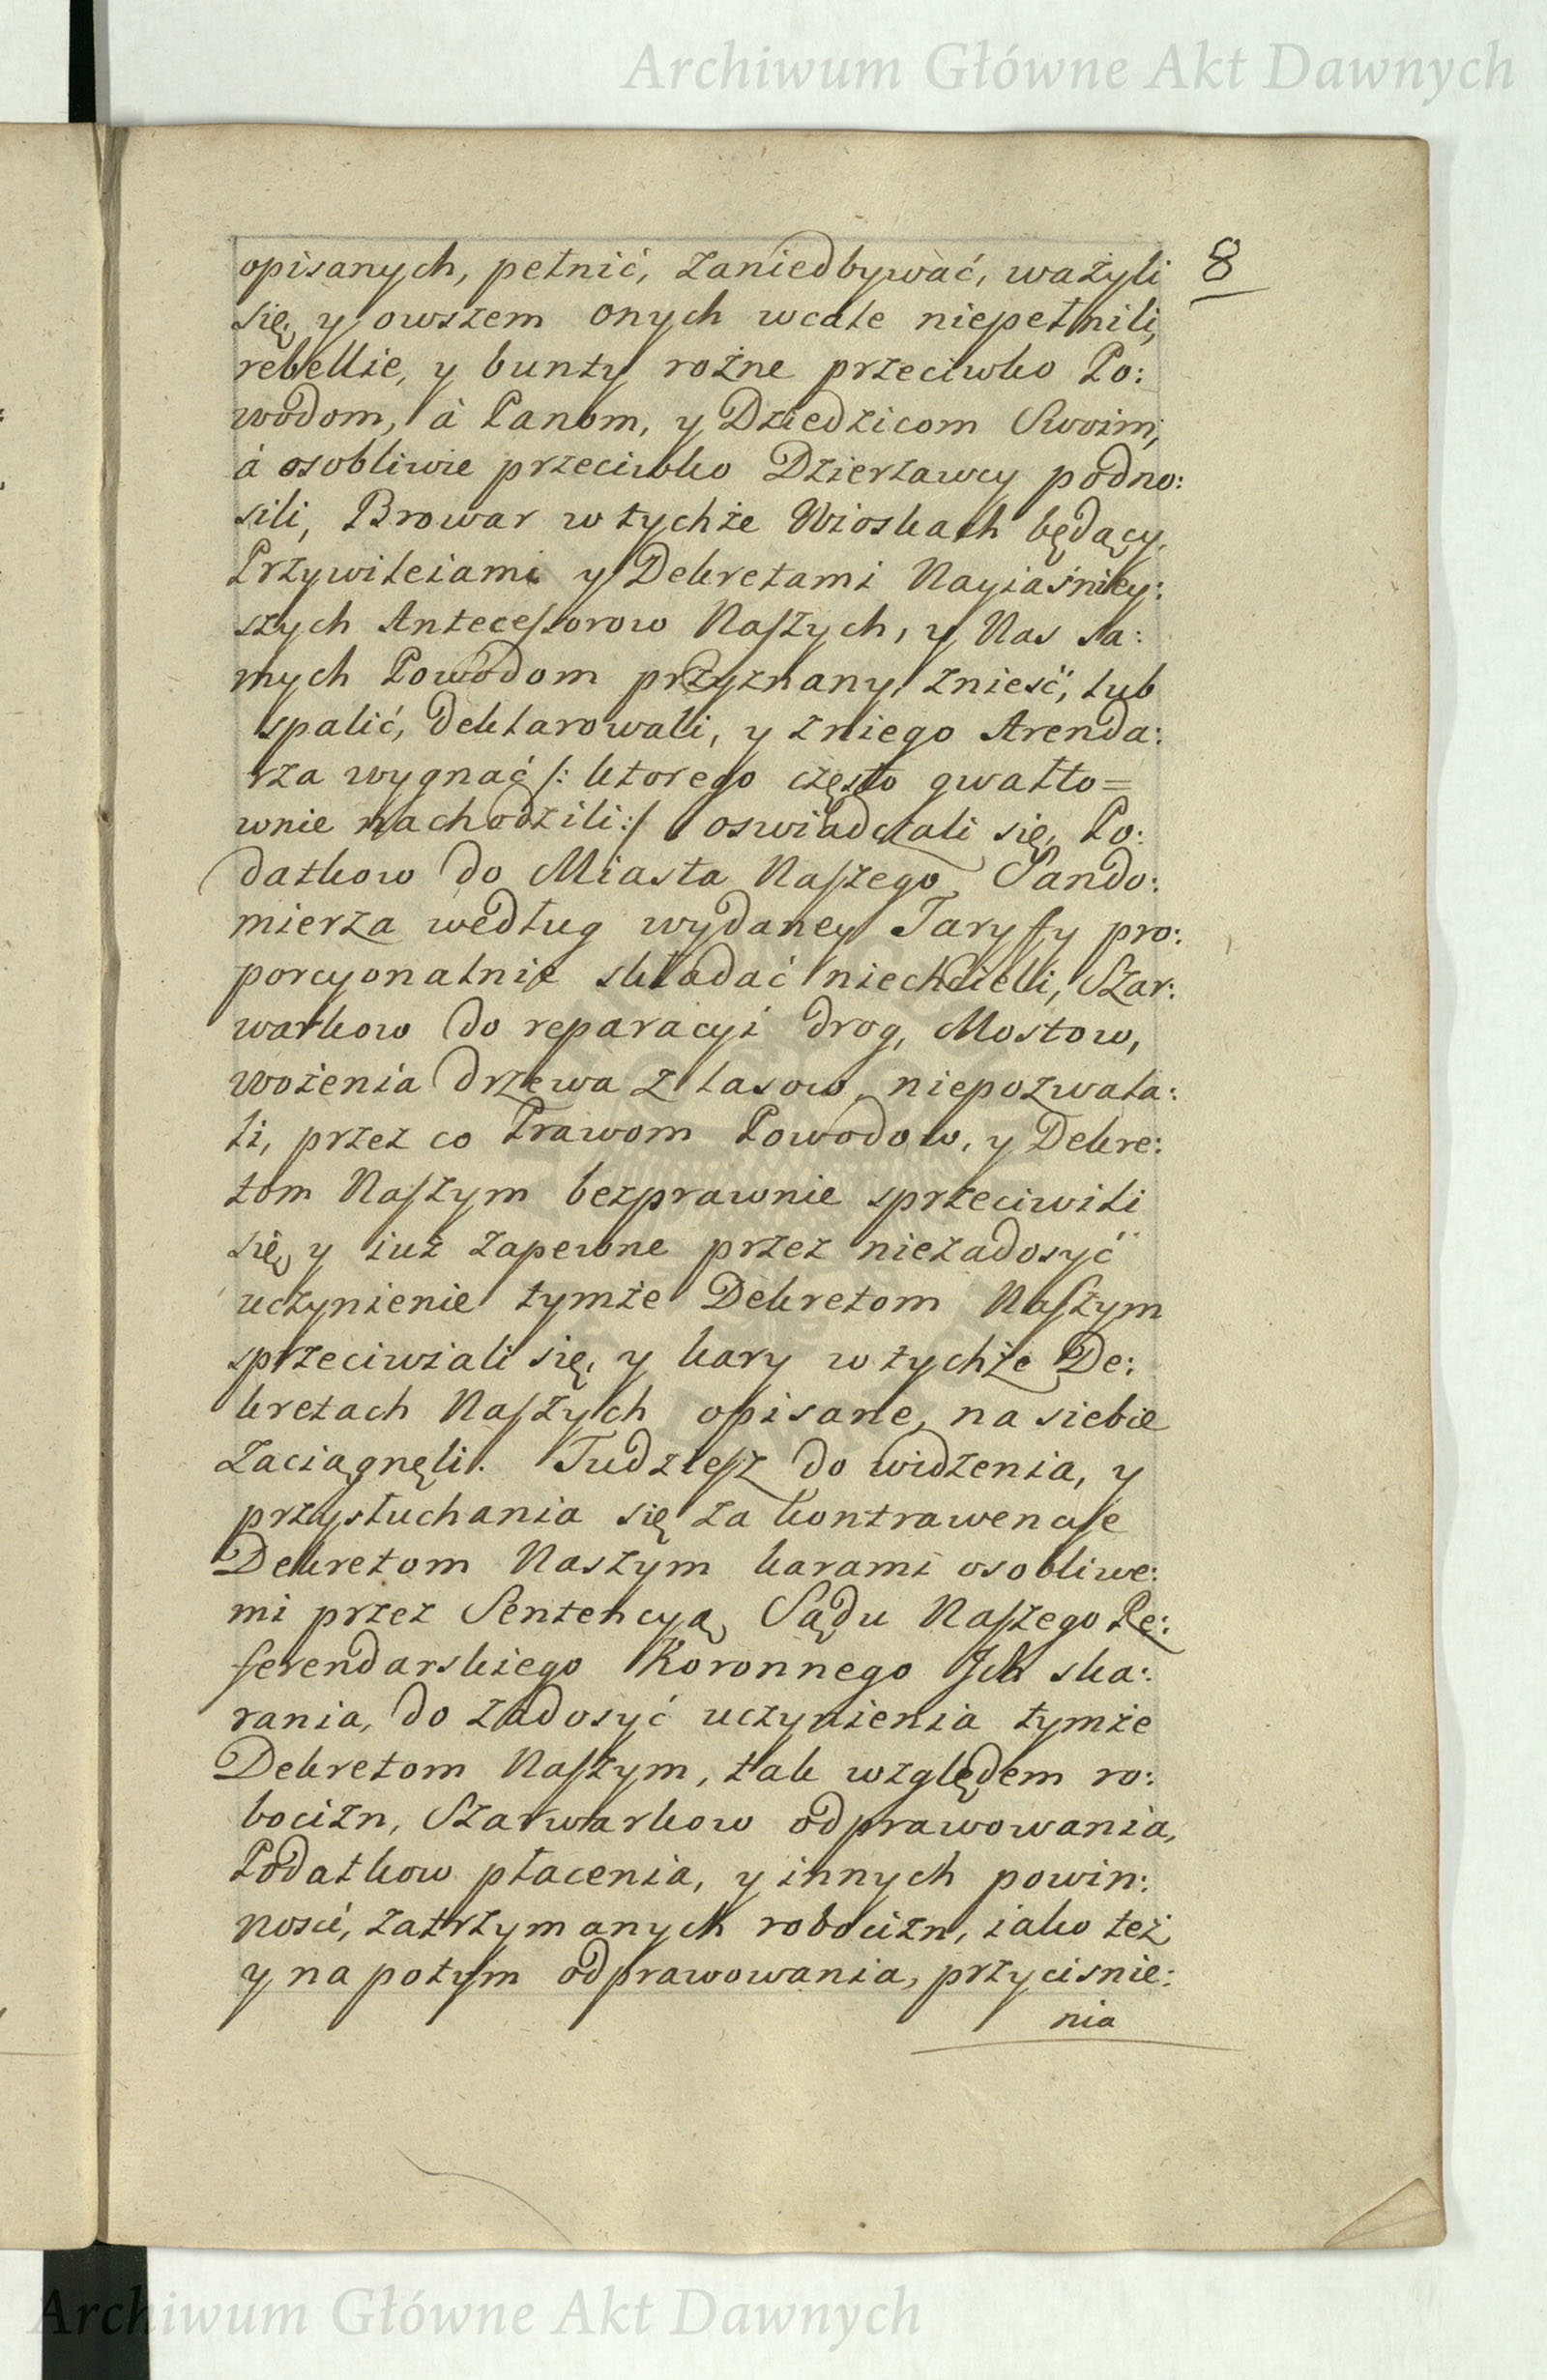 Archiwum Główne Akt Dawnych
8
opisanych, pełnić, zaniedbywać, ważyli
się, y owszem onych wcale niepełnili,
rebellie, y bunty rożne przeciwko Po:
wodom, à Panom, y Dziedzicom Swoim,
à osobliwie przeciwko Dzierzawcy podno:
sili, Browar w tychże Wioskach będący,
Przywileiami y Dekretami Nayiaśniey:
szych Antecessorow Naszych, y Nas sa:
mych Powodom przyznany, znieść, lub
spalić, deklarowali, y z niego Arenda:
rza wygnać /: ktorego często gwałto=
wnie nachodzili :/ oswiadczali się, Po:
datkow do Miasta Naszego Sando:
mierza według wydaney Taryffy pro:
porcyonalnie składać niechcieli, Szar:
warkow do reparacyi drog, Mostow,
wożenia drzewa z lasow, niepozwala:
li, przez co Prawom Powodow, y Dekre:
tom Naszym bezprawnie sprzeciwili
się, y iuż zapewne przez niezadosyć
uczynienie tymże Dekretom Naszym
sprzeciwiali się, y kary w tychże De:
kretach Naszych opisane, na siebie
zaciągnęli. Tudziesz do widzenia, y
przysłuchania się za kontrawencye
Dekretom Naszym karami osobliwe:
mi przez Sentencyą Sądu Naszego Re:
ferendarskiego Koronnego Ich ska:
rania, do zadosyć uczynienia tymże
Dekretom Naszym, tak względem ro:
bocizn, Szarwarkow odprawowania,
Podatkow płacenia, y innych powin:
nosci, zatrzymanych robocizn, iako też
y na potym odprawowania, przycisnie:
nia
Archiwum Główne Akt Dawnych